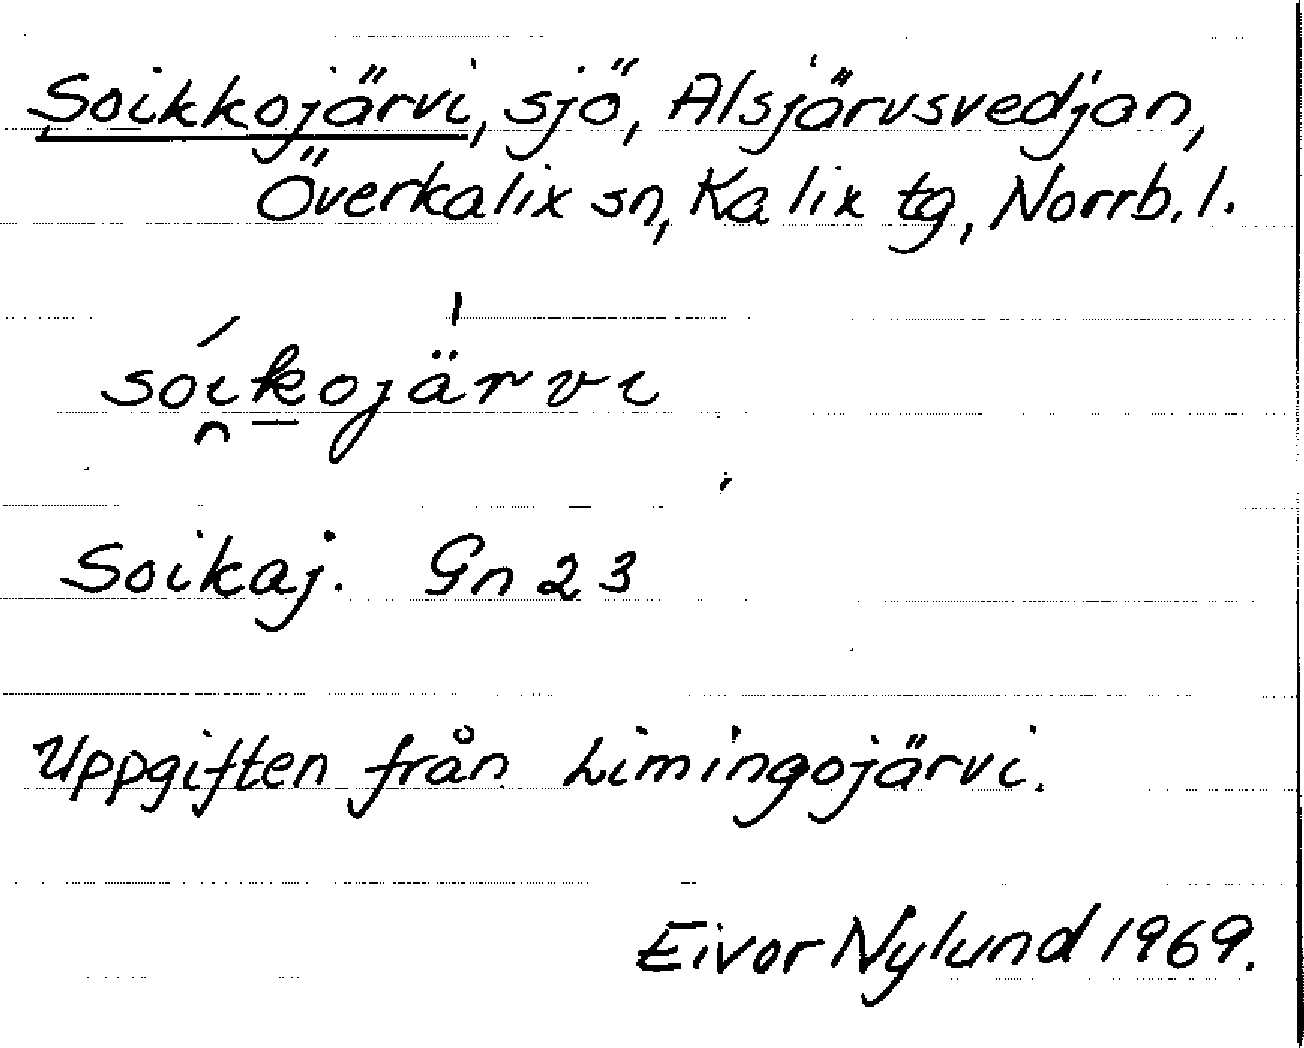 Soikkojärvi, sjö, Alsjärvsvedjan,
Överkalix sn, Kalix tg, Norrb. l.
so͕i̯k̲ojärvi
Soikaj. Gn 23
Uppgiften från Limingojärvi.
Eivor Nylund 1969.